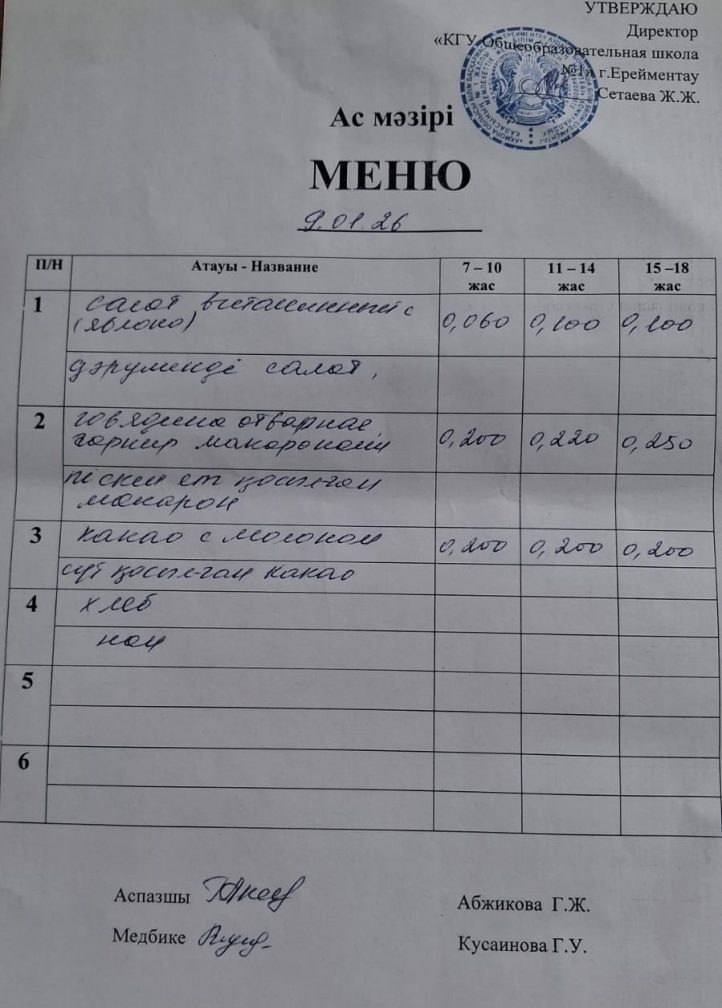 УТВЕРЖДАЮ
Директор
«КГУ Общеобразовательная школа
№1» г.Ерейментау
Сетаева Ж.Ж.
Ас мәзірі
МЕНЮ
9.01.26
П/Н Атауы - Название 7 – 10 жас 11 – 14 жас 15 –18 жас
1 салат витаминный с
(яблоко) 0,060 0,100 0,100
дәрумендi салат,
2 говядина отварная
гарнир макароном 0,200 0,220 0,250
піскен ет қосылған
макарон
3 какао с молоком 0,200 0,200 0,200
сүт қосылған какао
4 хлеб
нан
5
6
Аспазшы Абжикова Г.Ж.
Медбике Кусаинова Г.У.